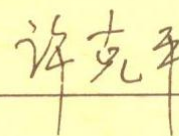 许克平